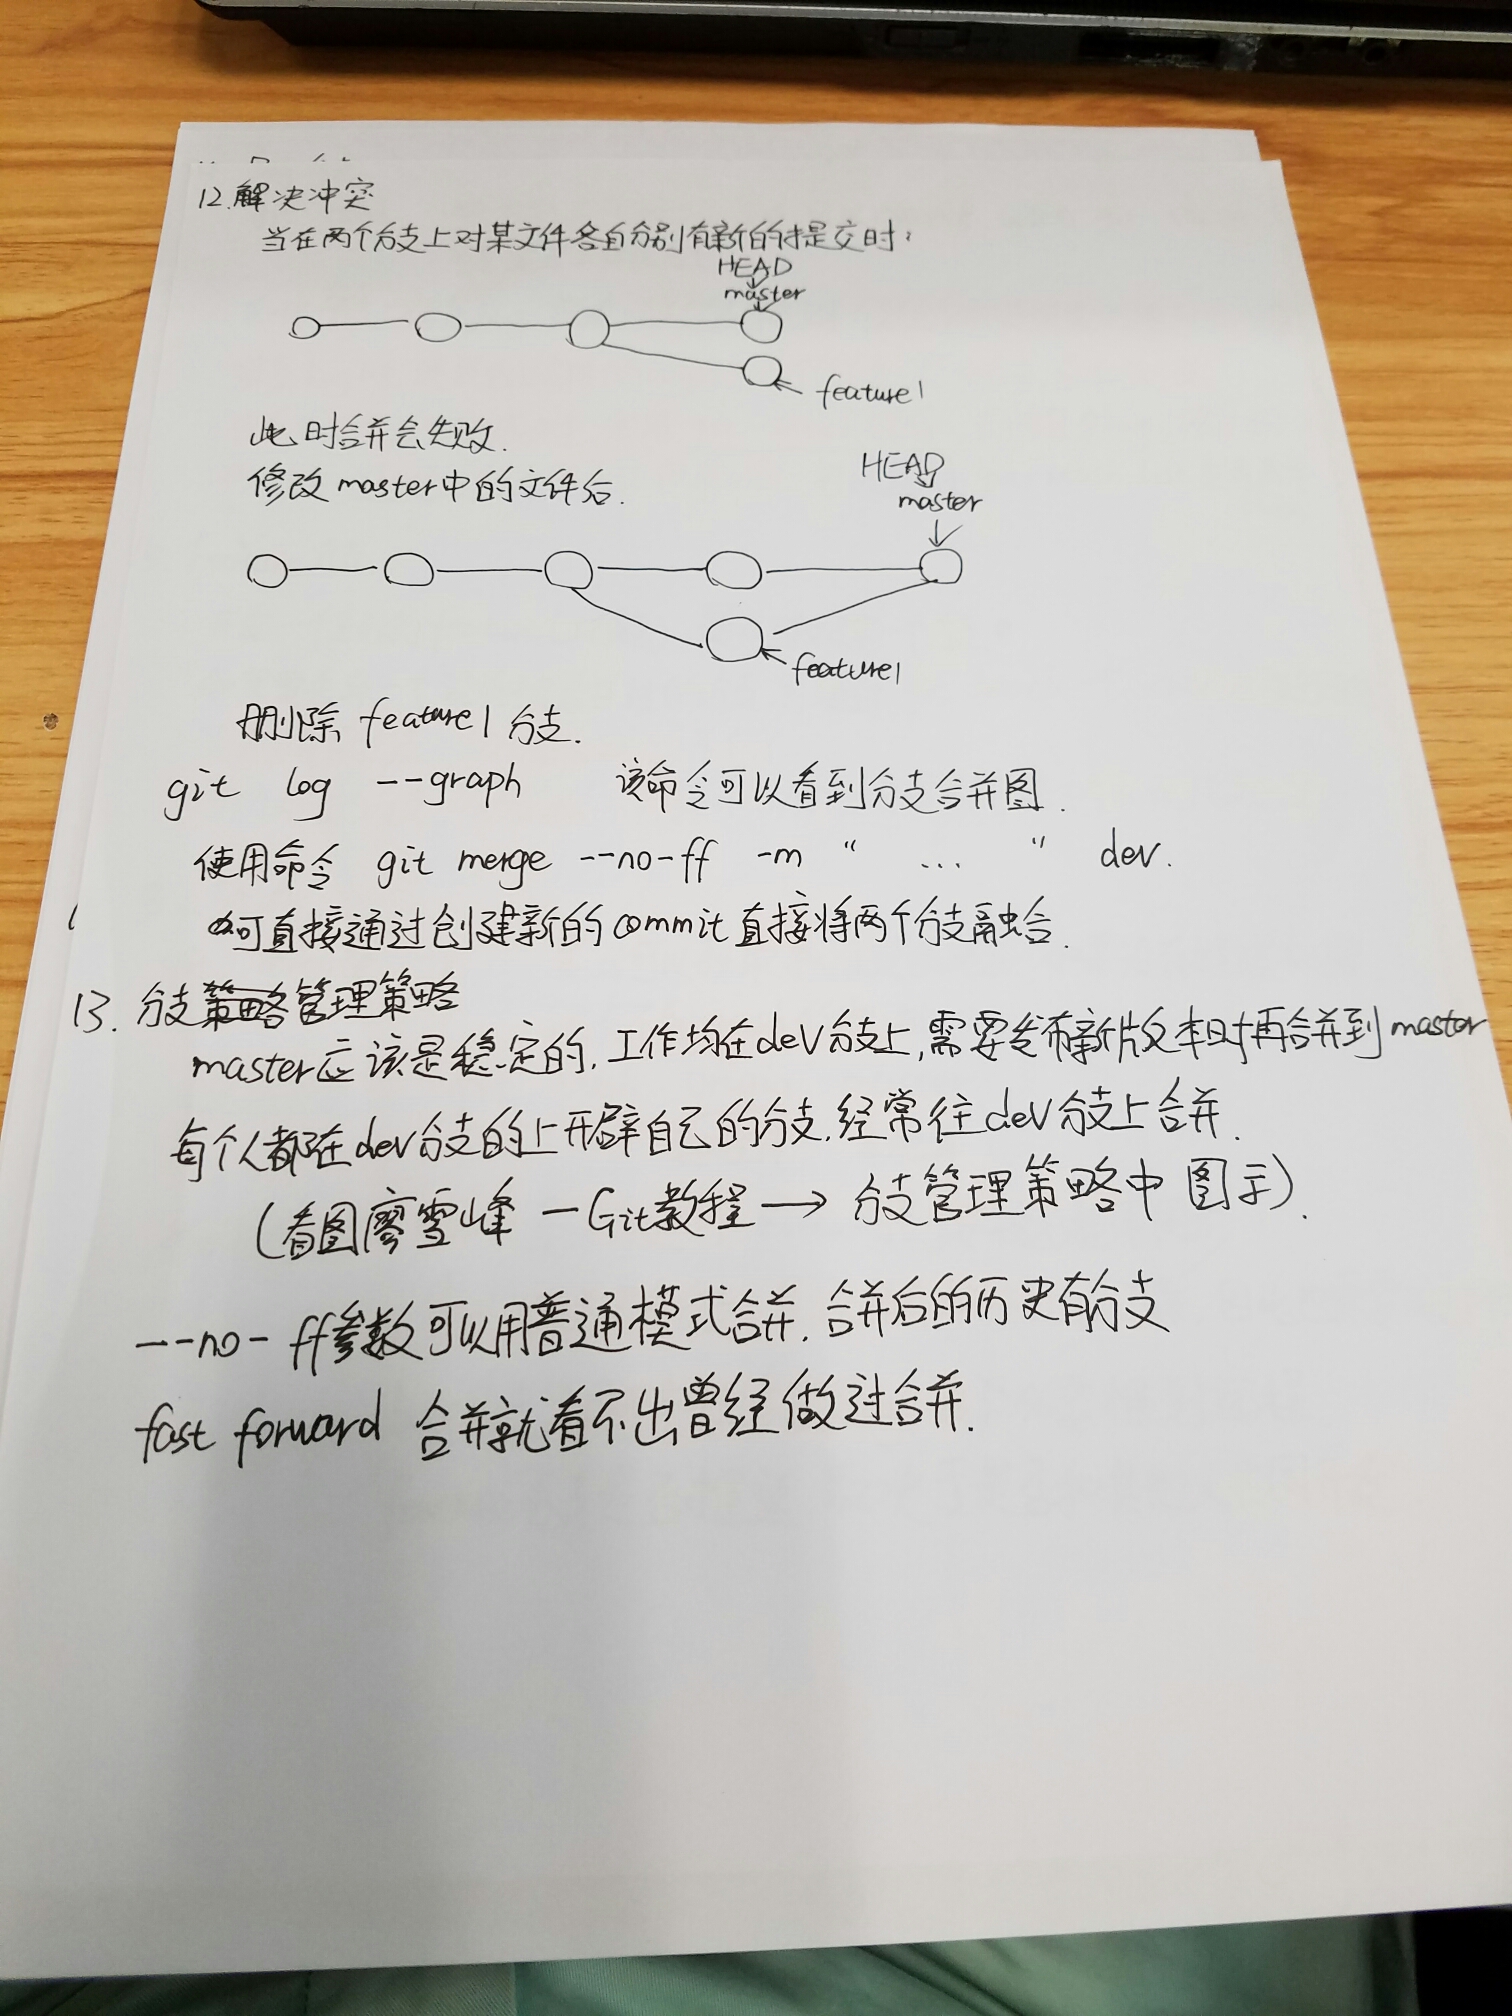 12.解决冲突
当在两个分支上对某文件各自分别有新的提交时:
HEAD
master
feature1
此时合并会失败.
修改master中的文件后.
HEAD
master
feature1
删除 feature1 分支.
git log --graph 该命令可以看到分支合并图.
使用命令 git merge --no-ff -m “ ... ” dev.
可直接通过创建新的commit直接将两个分支融合.
13. 分支管理策略
master应该是稳定的,工作均在dev分支上,需要发布新版本时再合并到master
每个人都在dev分支的上开辟自己的分支,经常往dev分支上合并.
(看图廖雪峰—Git教程→分支管理策略中图示).
--no-ff参数可以用普通模式合并,合并后的历史有分支
fast forward 合并就看不出曾经做过合并.